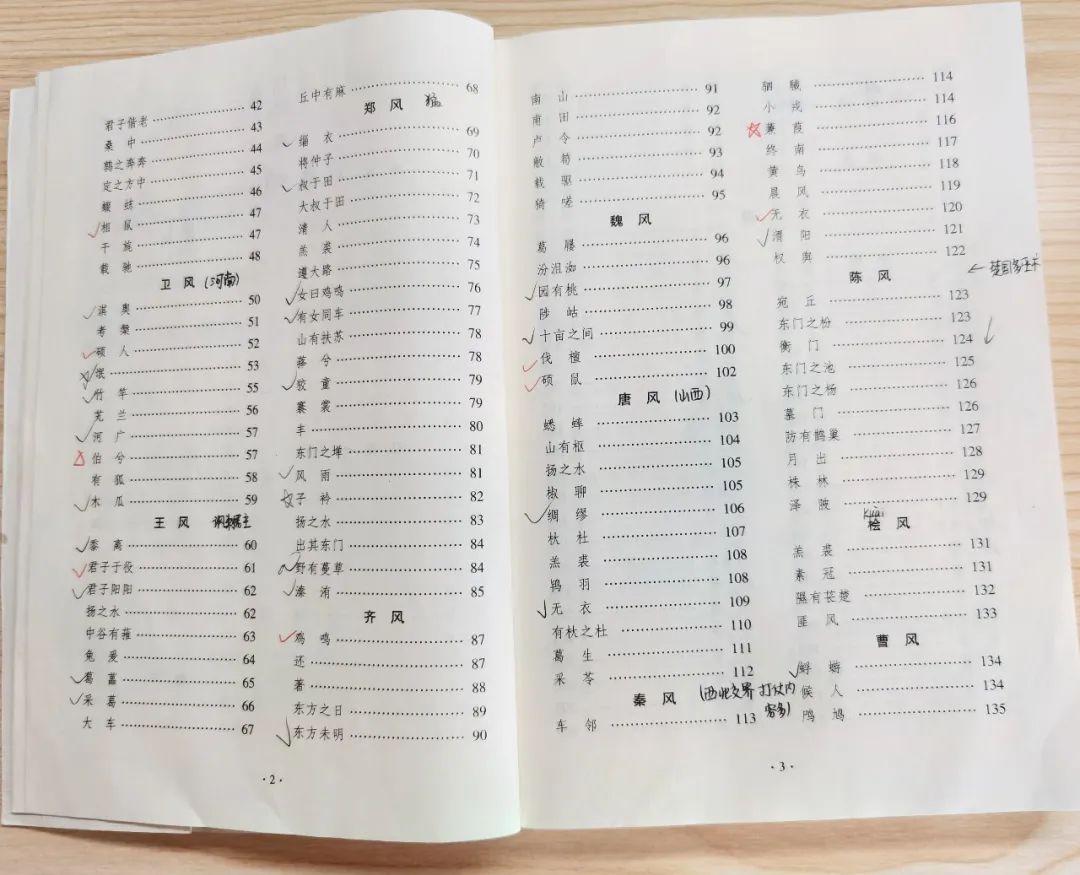 君子偕老 42
桑中 43
鹑之奔奔 44
定之方中 45
蝃蝀 46
相鼠 47
干旄 47
载驰 48
卫风 (河南)
淇奥 50
考槃 51
硕人 52
氓 53
竹竿 55
芄兰 56
河广 57
伯兮 57
有狐 58
木瓜 59
王风
黍离 60
君子于役 61
君子阳阳 62
扬之水 62
中谷有蓷 63
兔爰 64
葛藟 65
采葛 66
大车 67
丘中有麻 68
郑风
缁衣 69
将仲子 70
叔于田 71
大叔于田 72
清人 73
羔裘 74
遵大路 75
女曰鸡鸣 76
有女同车 77
山有扶苏 78
萚兮 78
狡童 79
褰裳 79
丰 80
东门之墠 81
风雨 81
子衿 82
扬之水 83
出其东门 84
野有蔓草 84
溱洧 85
齐风
鸡鸣 87
还 87
著 88
东方之日 89
东方未明 90
·2·
南山 91
甫田 92
卢令 92
敝笱 93
载驱 94
猗嗟 95
魏风
葛屦 96
汾沮洳 96
园有桃 97
陟岵 98
十亩之间 99
伐檀 100
硕鼠 102
唐风 (山西)
蟋蟀 103
山有枢 104
扬之水 105
椒聊 105
绸缪 106
杕杜 107
羔裘 108
鸨羽 108
无衣 109
有杕之杜 110
葛生 111
采苓 112
秦风 (西北交界 打仗内容多)
车邻 113
驷驖 114
小戎 114
蒹葭 116
终南 117
黄鸟 118
晨风 119
无衣 120
渭阳 121
权舆 122
陈风
宛丘 123
东门之枌 123
衡门 124
东门之池 125
东门之杨 126
墓门 126
防有鹊巢 127
月出 128
株林 129
泽陂 129
kuài
桧风
羔裘 131
素冠 131
隰有苌楚 132
匪风 133
曹风
蜉蝣 134
候人 134
鸤鸠 135
·3·